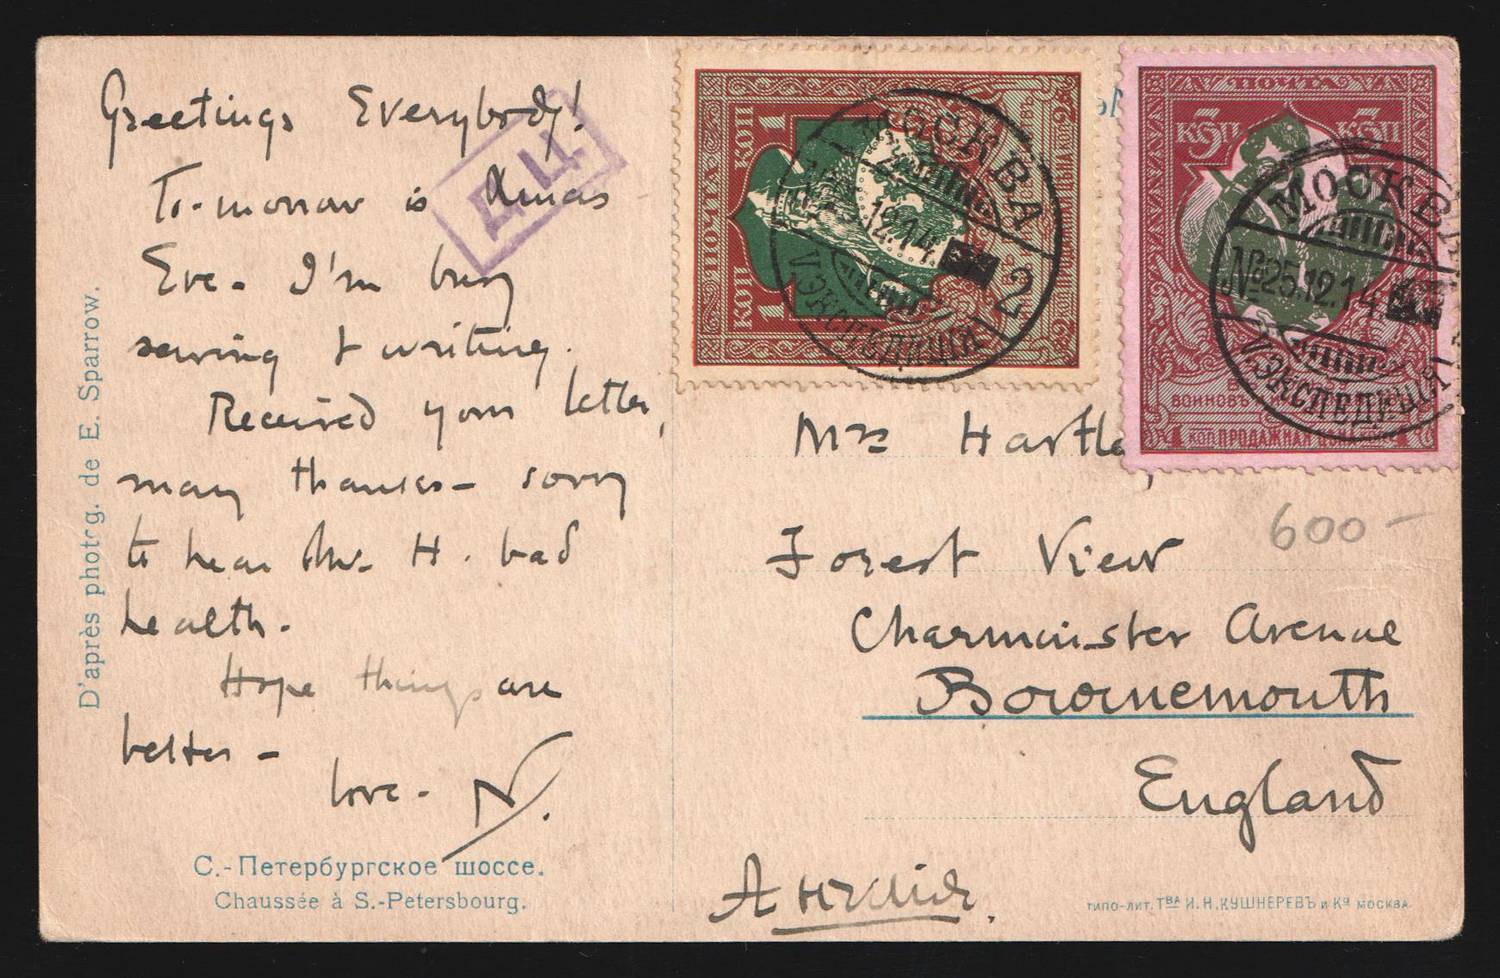 Greetings Everybody!
To-morrow is Xmas
Eve- I'm busy
sewing & writing.
Received your letter,
many thanks- sorry
to hear Mr. H. bad
health-
Hope things are
better-
love- N.
ДЦ
D'après photogr. de E. Sparrow.
С.-Петербургское шоссе.
Chaussée à S.-Petersbourg.
ПОЧТА
1 КОП 1 КОП
МОСКВА
12.14
2
ЭКСПЕДИЦІЯ
ПОЧТА
3 КОП 3 КОП
МОСКВА
№25.12.14
ЭКСПЕДИЦІЯ
КОП ПРОДАЖНАЯ
Mrs Hartle
600-
Forest View
Charminster Avenue
Bournemouth
England
Англия.
ТИПО-ЛИТ. ТВА И. Н. КУШНЕРЕВЪ и Ко МОСКВА.